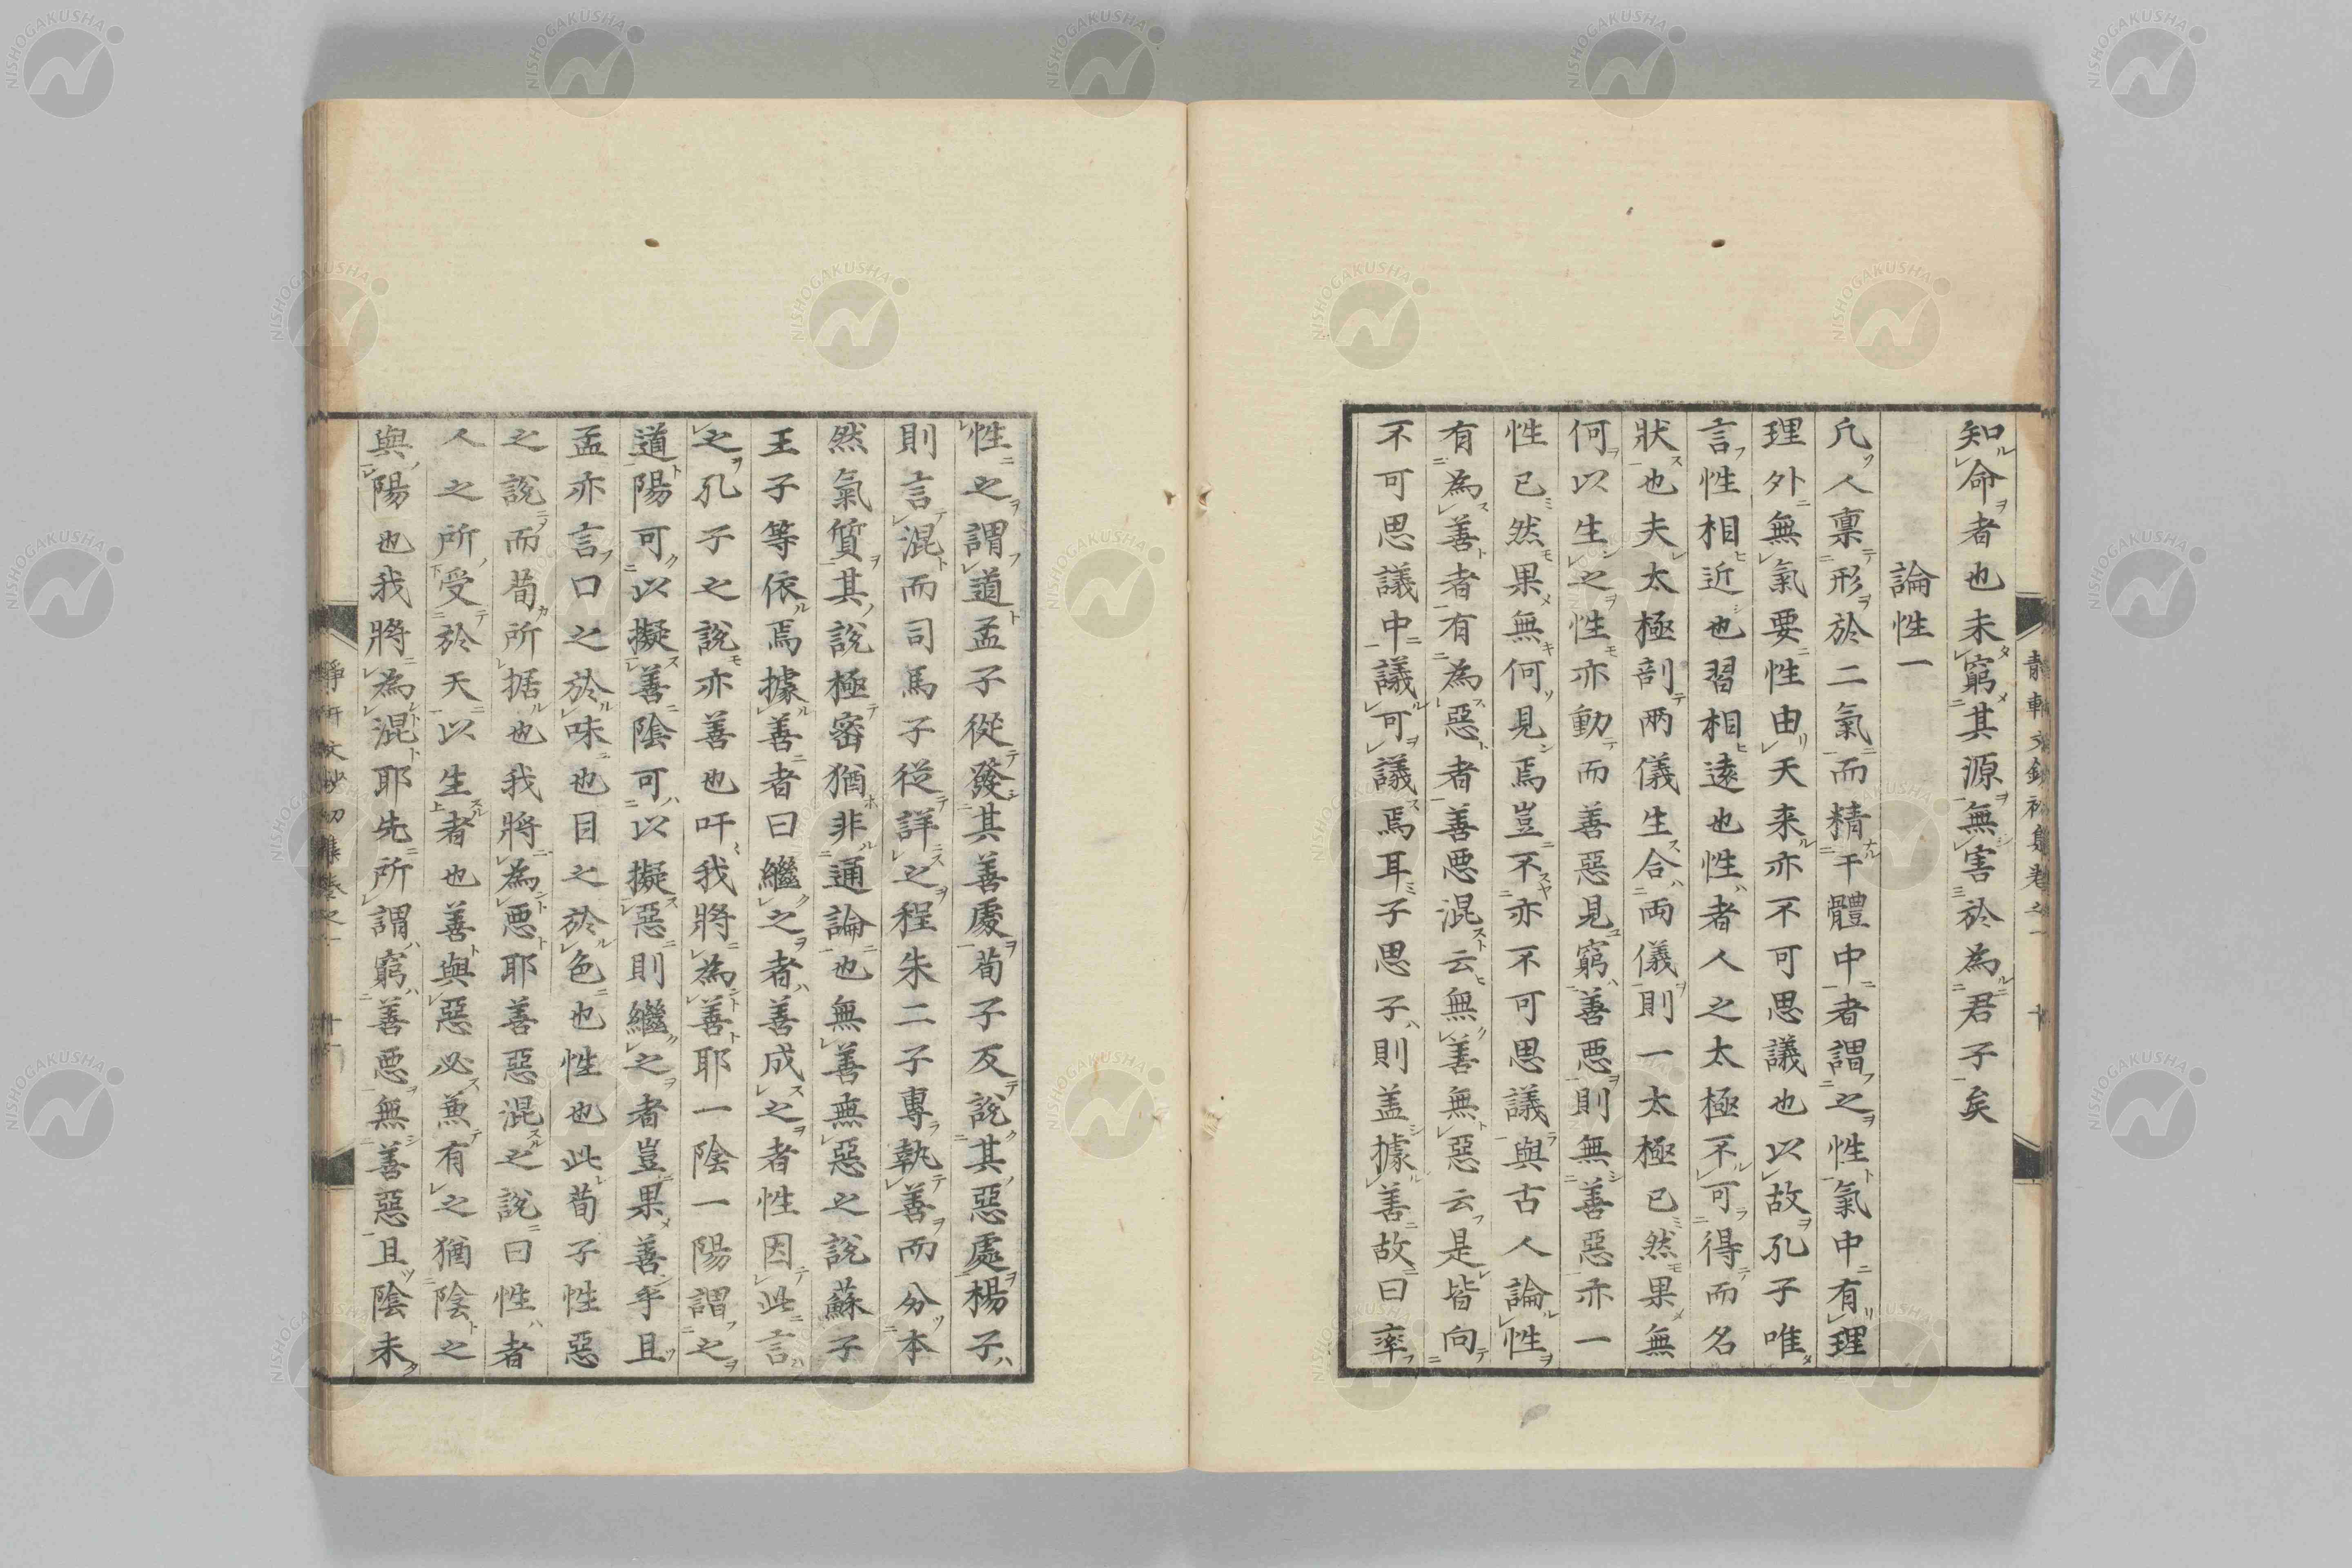 知命者也未窮其源無害於為君子矣
論性一
凢人禀形於二氣而精干體中者謂之性氣中有理
理外無氣要性由天来亦不可思議也以故孔子唯
言性相近也習相遠也性者人之太極不可得而名
狀也夫太極剖兩儀生合両儀則一太極已然果無
何以生之性亦動而善惡見窮善悪則無善惡亦一
性已然果無何見焉豈不亦不可思議與古人論性
有為善者有為惡者善悪混云無善無惡云是皆向
不可思議中議可議焉耳子思子則盖據善故曰率
性之謂道孟子從發其善處荀子反說其惡處楊子
則言混而司馬子従詳之程朱二子專執善而分本
然氣質其說極密猶非通論也無善無惡之說蘇子
王子等依焉據善者曰繼之者善成之者性因此言
之孔子之說亦善也吁我將為善耶一陰一陽謂之
道陽可以擬善陰可以擬惡則繼之者豈果善乎且
孟亦言口之於味也目之於色也性也此荀子性惡
之說而荀所据也我將為悪耶善惡混之說曰性者
人之所受於天以生者也善與惡必兼有之猶陰之
與陽也我將為混耶先所謂窮善悪無善惡且陰未